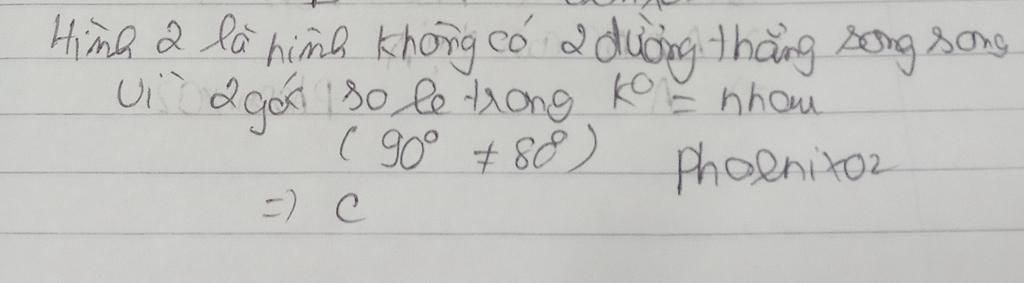 Hình 2 là hình không có 2 đường thẳng song song
Vì 2 góc so le trong k° = nhau
(90° ≠ 80°) Phoenixoz
=> C